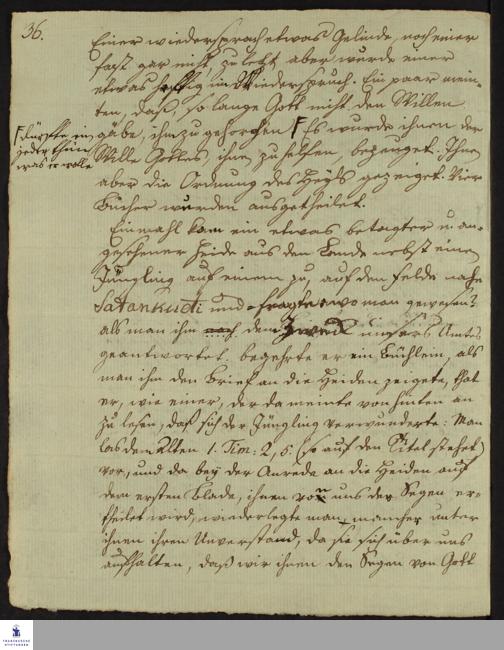 36.
Einer wiedersprach etwas Gelinde, noch einer
fast gar nicht zu letzt aber wurde einer
etwas hefftig im Wiederspruch. Ein paar mein-
ten, daß, so lange Gott nicht den Willen
gäbe, ihm zu gehorchen Γ Es wurde ihnen der
Γ dürffte ein
jeder thun
was er wolle
Wille Gottes, ihnen zu helfen, bezeuget. Ihnen
aber die Ordnung des Heyls gezeiget. Vier
Bücher wurden ausgetheilet.
Einmahl kam ein etwas betagter u. an-
gesehener Heide aus dem Lande nebst einem
Jüngling auf einem zu, auf dem Felde nahe
Satankudi und fragte: wo man gewesen?
als man ihm nach dem Zweck unsers Amtes
geantwortet. begehrte er ein Büchlein, als
man ihm den Brief an die Heiden zeigete, that
er, wie einer, der da meinte von hinten an
zu lesen, daß sich der Jüngling verwunderte: Man
las dem Alten 1. Tim: 2, 5. (so auf dem Titel stehet)
vor, und da bey der Anrede an die Heiden auf
dem ersten Blade, ihnen von uns der Segen er-
theilet wird, wiederlegte man mancher unter
ihnen ihren Unverstand, da sie sich über uns
aufhalten, daß wir ihnen den Segen von Gott
FRANCKESCHE
STIFTUNGEN